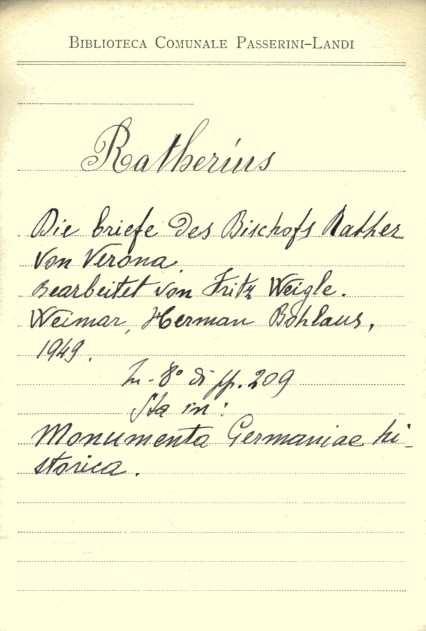 BIBLIOTECA COMUNALE PASSERINI-LANDI
Ratherius
Die briefe des Bischofs Rather
von Verona.
Bearbeitet von Fritz Weigle.
Weimar, Herman Böhlaus,
1949.
In-8° di pp. 209
Sta in:
Monumenta Germaniae hi-
storica.